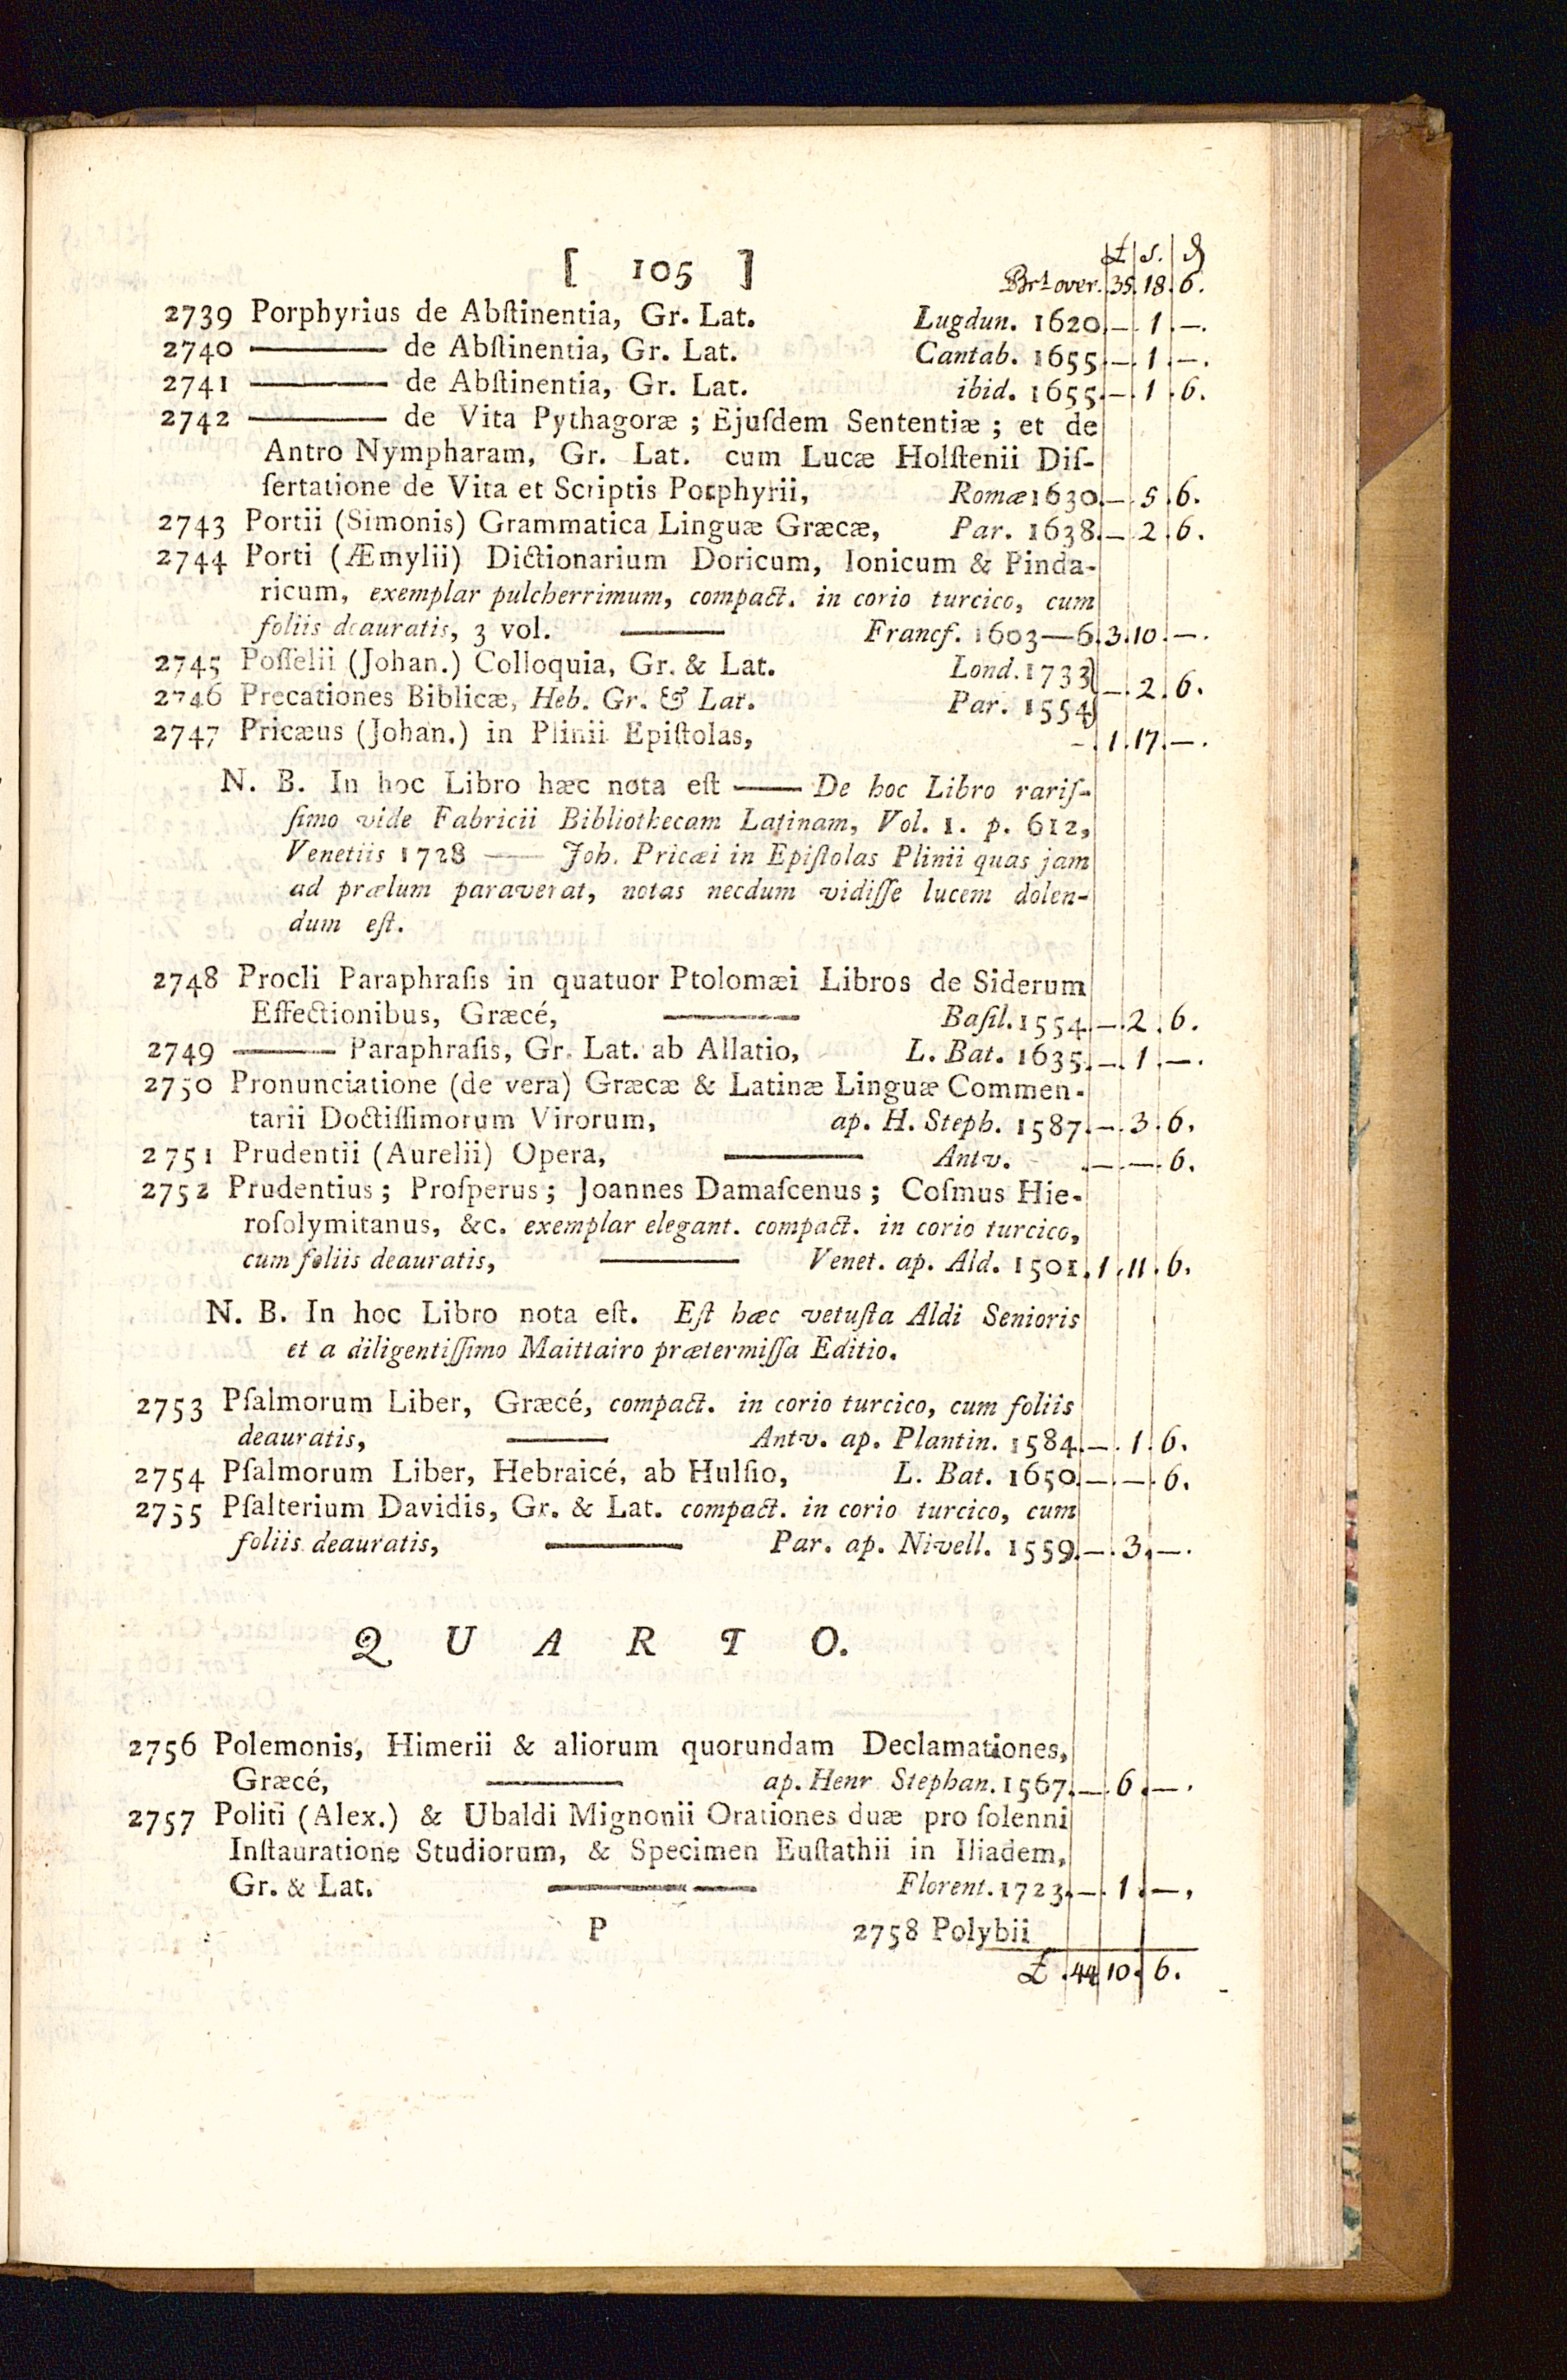 £ | s. | d
[ 105 ]
Brt over. 35. 18. 6.
2739 Porphyrius de Abſtinentia, Gr. Lat. Lugdun. 1620. — . 1 . — .
2740 ——— de Abſtinentia, Gr. Lat. Cantab. 1655. — . 1 . — .
2741 ——— de Abſtinentia, Gr. Lat. ibid. 1655. — . 1 . 6.
2742 ——— de Vita Pythagoræ ; Ejuſdem Sententiæ ; et de
Antro Nympharam, Gr. Lat. cum Lucæ Holſtenii Diſ-
ſertatione de Vita et Scriptis Porphyrii, Romæ 1630. — . 5 . 6.
2743 Portii (Simonis) Grammatica Linguæ Græcæ, Par. 1638. — . 2 . 6.
2744 Porti (Æmylii) Dictionarium Doricum, Ionicum & Pinda-
ricum, exemplar pulcherrimum, compact. in corio turcico, cum
foliis deauratis, 3 vol. ——— Francf. 1603—6. 3. 10. — .
2745 Poſſelii (Johan.) Colloquia, Gr. & Lat. Lond. 1733
2746 Precationes Biblicæ, Heb. Gr. & Lat. Par. 1554 } — . 2 . 6.
2747 Pricæus (Johan.) in Plinii Epiſtolas, - . 1. 17. — .
N. B. In hoc Libro hæc nota eſt —— De hoc Libro rariſ-
ſimo vide Fabricii Bibliothecam Latinam, Vol. 1. p. 612,
Venetiis 1728 —— Joh. Pricæi in Epiſtolas Plinii quas jam
ad prælum paraverat, notas necdum vidiſſe lucem dolen-
dum eſt.
2748 Procli Paraphraſis in quatuor Ptolomæi Libros de Siderum
Effectionibus, Græcé, ——— Baſil. 1554. — . 2 . 6.
2749 ——— Paraphraſis, Gr. Lat. ab Allatio, L. Bat. 1635. — . 1 . — .
2750 Pronunciatione (de vera) Græcæ & Latinæ Linguæ Commen-
tarii Doctiſſimorum Virorum, ap. H. Steph. 1587. — . 3 . 6.
2751 Prudentii (Aurelii) Opera, ——— Antv. . — . — . 6.
2752 Prudentius ; Proſperus ; Joannes Damaſcenus ; Coſmus Hie-
roſolymitanus, &c. exemplar elegant. compact. in corio turcico,
cum foliis deauratis, ——— Venet. ap. Ald. 1501. 1 . 11 . 6.
N. B. In hoc Libro nota eſt. Eſt hæc vetuſta Aldi Senioris
et a diligentiſſimo Maittairo prætermiſſa Editio.
2753 Pſalmorum Liber, Græcé, compact. in corio turcico, cum foliis
deauratis, ——— Antv. ap. Plantin. 1584. — . 1 . 6.
2754 Pſalmorum Liber, Hebraicé, ab Hulſio, L. Bat. 1650. — . — . 6.
2755 Pſalterium Davidis, Gr. & Lat. compact. in corio turcico, cum
foliis deauratis, ——— Par. ap. Nivell. 1559. — . 3 . — .
Q U A R T O.
2756 Polemonis, Himerii & aliorum quorundam Declamationes,
Græcé, ——— ap. Henr Stephan. 1567. — . 6 . — .
2757 Politi (Alex.) & Ubaldi Mignonii Orationes duæ pro ſolenni
Inſtauratione Studiorum, & Specimen Euſtathii in Iliadem,
Gr. & Lat. ——— Florent. 1723. — . 1 . — .
P 2758 Polybii
£ . 44 10. 6.